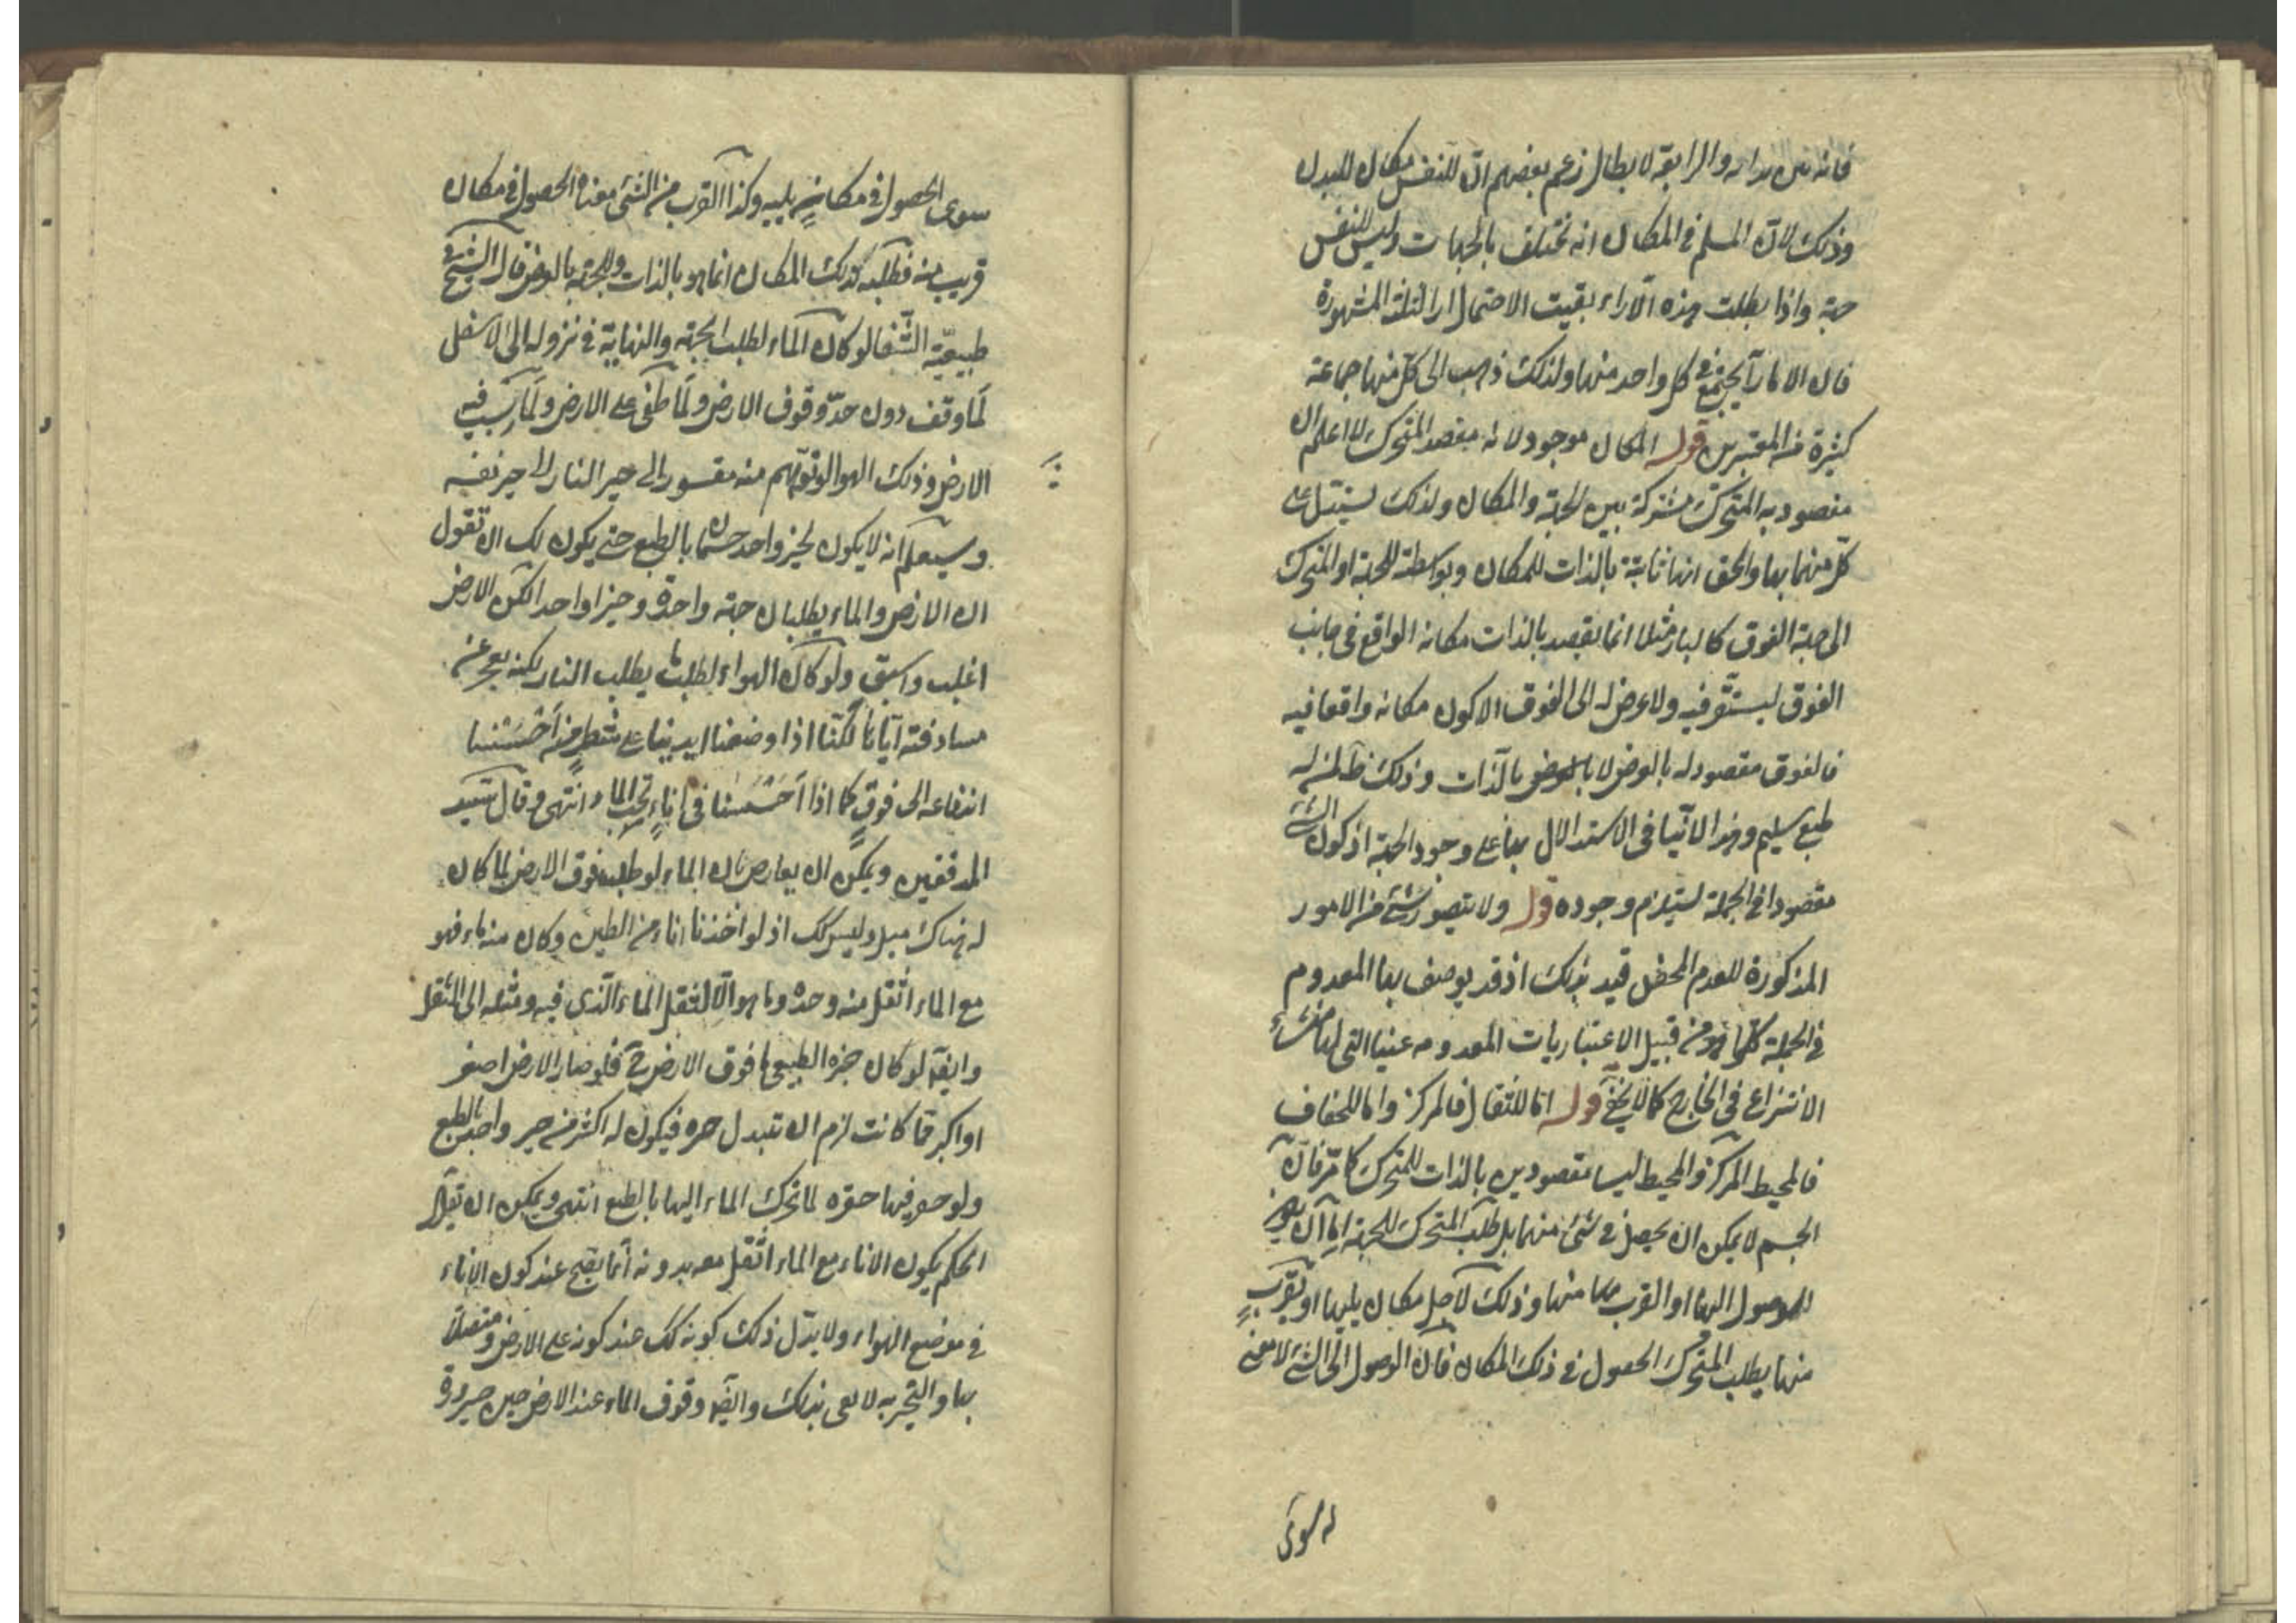 والرابعة لابطال زعم بعضهم ان للنفس مكان للبدن
وذلك لان المسلم في المكان انه يختلف بالجهات وليس للنفس
جهة واذا بطلت هذه الآراء بقيت الاحتمالات الثلثة المشهورة
قال الامارات يجتمع في كل واحد منها ولذلك ذهب الى كل منها جماعة
كثيرة من المعتبرين قوله المكان موجود لانه مقصد المتحرك اعلم ان
مقصودية المتحرك مشتركة بين الجهة والمكان ولذلك يستدل على
كل منهما بها والحق انها ثابتة بالذات للمكان وبواسطته للجهة اذ المتحرك
الى جهة الفوق كالنار مثلا انما يقصد بالذات مكانه الواقع في جانب
الفوق ليستقر فيه ولا غرض له الى الفوق الا كون مكانه واقعا فيه
فالفوق مقصود له بالعرض لا بالذات وذلك ظ لمن له
طبع سليم وهذا لا ينافى الاستدلال بها على وجود الجهة اذ كون الشئ
مقصودا فى الجملة يستلزم وجوده قوله ولا يتصور شئ من الامور
المذكورة للعدم المحض قيد بذلك اذ قد يوصف بها المعدوم
في الجملة كلها فهو من قبيل الاعتباريات المعدومه عينا التى لها منشاء
الانتزاع فى الخارج كما لا يخفى قوله اما للثقال فالمركز واما للخفاف
فالمحيط المركز والمحيط ليسا مقصودين بالذات للمتحرك كما مر فان
الجسم لا يمكن ان يحصل في شئ منهما بل طلب المتحرك للجهة اما ان يكون
للوصول اليها او القرب منها وذلك لاجل مكان يليها او يقرب
منها يطلب المتحرك الحصول في ذلك المكان فان الوصول الى الشئ لا معنى
له سوى
سوى الحصول في مكان يليه وكذا القرب من الشئ معناه الحصول في مكان
قريب منه فطلبه لذلك المكان انما هو بالذات وللجهة بالعرض قال الشيخ في
طبيعية الشفا لو كان الماء لطلب الجهة والنهاية في نزوله الى الاسفل
لما وقف دون حد وقوف الارض ولما طفى على الارض ولما رسب فيه
الارض وذلك الهوا لو توهم منه مقسور الى حيز النار لا الى حيز نفسه
وسيعلم انه لا يكون لحيز واحد جسمان بالطبع حتى يكون لك ان تقول
ان الارض والماء يطلبان جهة واحدة وحيزا واحدا لكن الارض
اغلب واسبق ولو كان الهواء يطلب النار لكنه يعجز عن
اياها لكنا اذا وضعنا ايدينا على شطر منه احسسنا
اندفاعه الى فوق كما اذا احسسنا في اناء تحت الماء انتهى وقال سيد
المدققين ويمكن ان يعارض بان الماء لو طلب فوق الارض لما كان
له هناك ميل وليس كك اذ لو اخذنا اناء من الطين وكان منه ماء فهو
مع الماء اثقل منه وحده وما هو الا لثقل الماء الذى فيه وميله الى الثقل
وايضا لو كان حيزه الطبيعى ما فوق الارض فلو صار الارض اصغر
او اكبر مما كانت لزم ان يتبدل حيزه فيكون له اكثر من حيز واحد بالطبع
ولو حفر فيها حفرة لما تحرك الماء اليها بالطبع انتهى ويمكن ان يقال
الحكم بكون الاناء مع الماء اثقل معه بدونه انما يصح عند كون الاناء
في موضع الهواء ولا يدل ذلك كونه كك عند كونه على الارض متصلا
بها والتجربه لا تفى بذلك وايضا وقوف الماء عند الارض حين